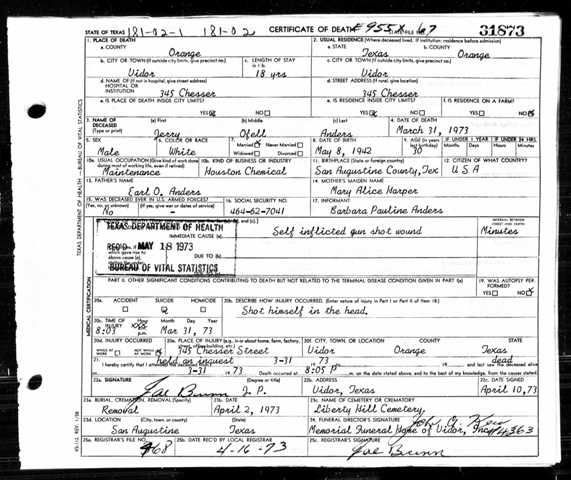 STATE OF TEXAS 181-02-1 181-02 CERTIFICATE OF DEATH STATE FILE NO. 31873
1. PLACE OF DEATH 2. USUAL RESIDENCE (Where deceased lived. If institution: residence before admission)
a. COUNTY Orange a. STATE Texas b. COUNTY Orange
b. CITY OR TOWN (If outside city limits, give precinct no.) Vidor c. LENGTH OF STAY in 1 b. 18 yrs c. CITY OR TOWN (If outside city limits, give precinct no.) Vidor
d. NAME OF (If not in hospital, give street address) HOSPITAL OR INSTITUTION 345 Chesser d. STREET ADDRESS (If rural, give location) 345 Chesser
e. IS PLACE OF DEATH INSIDE CITY LIMITS? YES NO e. IS RESIDENCE INSIDE CITY LIMITS? YES NO f. IS RESIDENCE ON A FARM? YES NO
3. NAME OF DECEASED (Type or print) (a) First Jerry (b) Middle Ofell (c) Last Anders 4. DATE OF DEATH March 31, 1973
5. SEX Male 6. COLOR OR RACE White 7. Married Never Married Widowed Divorced 8. DATE OF BIRTH May 8, 1942 9. AGE (In years last birthday) 30 IF UNDER 1 YEAR Months Days IF UNDER 24 HRS. Hours Min.
10a. USUAL OCCUPATION (Give kind of work done during most of working life, even if retired) Maintenance 10b. KIND OF BUSINESS OR INDUSTRY Houston Chemical 11. BIRTHPLACE (State or foreign country) San Augustine County, Tex 12. CITIZEN OF WHAT COUNTRY? U S A
13. FATHER'S NAME Earl O. Anders 14. MOTHER'S MAIDEN NAME Mary Alice Harper
15. WAS DECEASED EVER IN U.S. ARMED FORCES? (Yes, no, or unknown) (If yes, give war or dates of service) No - 16. SOCIAL SECURITY NO. 464-62-7041 17. INFORMANT Barbara Pauline Anders
TEXAS DEPARTMENT OF HEALTH
IMMEDIATE CAUSE (a) Self inflicted gun shot wound Minutes
REC'D MAY 18 1973
DUE TO (b)
BUREAU OF VITAL STATISTICS
PART II. OTHER SIGNIFICANT CONDITIONS CONTRIBUTING TO DEATH BUT NOT RELATED TO THE TERMINAL DISEASE CONDITION GIVEN IN PART I(a) 19. WAS AUTOPSY PERFORMED? YES NO
20a. ACCIDENT SUICIDE HOMICIDE 20b. DESCRIBE HOW INJURY OCCURRED. (Enter nature of injury in Part I or Part II of Item 18.)
Shot himself in the head.
20c. TIME OF INJURY 8:03 p.m. Mar 31, 73
20d. INJURY OCCURRED WHILE AT WORK NOT WHILE AT WORK 20e. PLACE OF INJURY (e.g., in or about home, farm, factory, street, office building, etc.) 345 Chesser Street 20f. CITY, TOWN, OR LOCATION Vidor COUNTY Orange STATE Texas
21. I hereby certify that I held an inquest 3-31 73 dead
3-31 73 Death occurred at 8:05 P m. on the date stated above, and to the best of my knowledge, from the causes stated.
22a. SIGNATURE Joe Bunn J. P. 22b. ADDRESS Vidor, Texas 22c. DATE SIGNED April 10, 73
23a. BURIAL, CREMATION, REMOVAL (Specify) Removal 23b. DATE April 2, 1973 23c. NAME OF CEMETERY OR CREMATORY Liberty Hill Cemetery,
23d. LOCATION (City, town, or county) (State) San Augustine Texas 24. FUNERAL DIRECTOR'S SIGNATURE Memorial Funeral Home of Vidor, Inc. 4363
25a. REGISTRAR'S FILE NO. 25b. DATE REC'D BY LOCAL REGISTRAR 4-16-73 25c. REGISTRAR'S SIGNATURE Joe Bunn
TEXAS DEPARTMENT OF HEALTH — BUREAU OF VITAL STATISTICS
MEDICAL CERTIFICATION